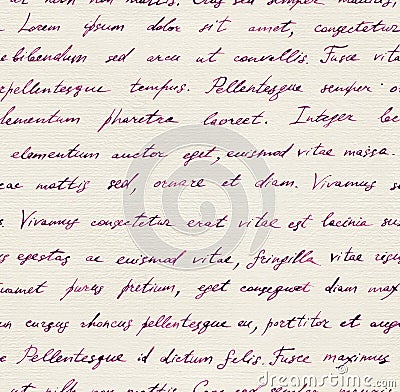 ut nibh non mattis. Cras sed semper maximus,
Lorem ipsum dolor sit amet, consectetur
bibendum sed arcu ut convallis. Fusce vita
pellentesque tempus. Pellentesque semper
lementum pharetra laoreet. Integer lac
elementum auctor eget, euismod vitae massa.
ac mattis sed, ornare et diam. Vivamus s
s. Vivamus consectetur erat vitae est lacinia sus
us egestas ac euismod vitae, fringilla vitae risus
amet purus pretium, eget consequat diam max
n cursus rhoncus pellentesque eu, porttitor et augu
e Pellentesque id dictum felis. Fusce maximus
ut nibh non mattis. Cras sed semper maximus
dreamstime.com